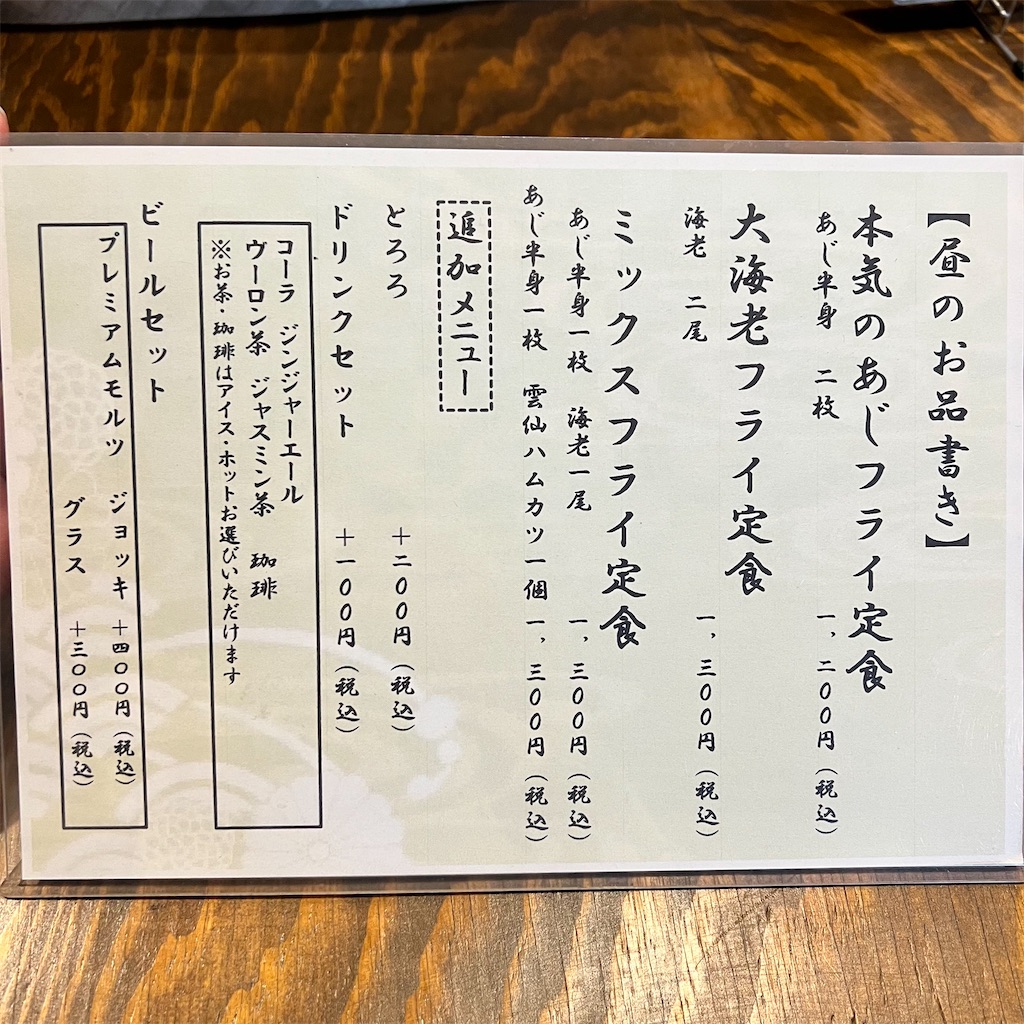 【昼のお品書き】
本気のあじフライ定食
あじ半身 二枚 一、二〇〇円(税込)
大海老フライ定食
海老 二尾 一、三〇〇円(税込)
ミックスフライ定食
あじ半身一枚 海老一尾 一、三〇〇円(税込)
あじ半身一枚 雲仙ハムカツ一個 一、三〇〇円(税込)
追加メニュー
とろろ +二〇〇円(税込)
ドリンクセット +一〇〇円(税込)
コーラ ジンジャーエール
ウーロン茶 ジャスミン茶 珈琲
※お茶・珈琲はアイス・ホットお選びいただけます
ビールセット
プレミアムモルツ ジョッキ +四〇〇円(税込)
グラス +三〇〇円(税込)